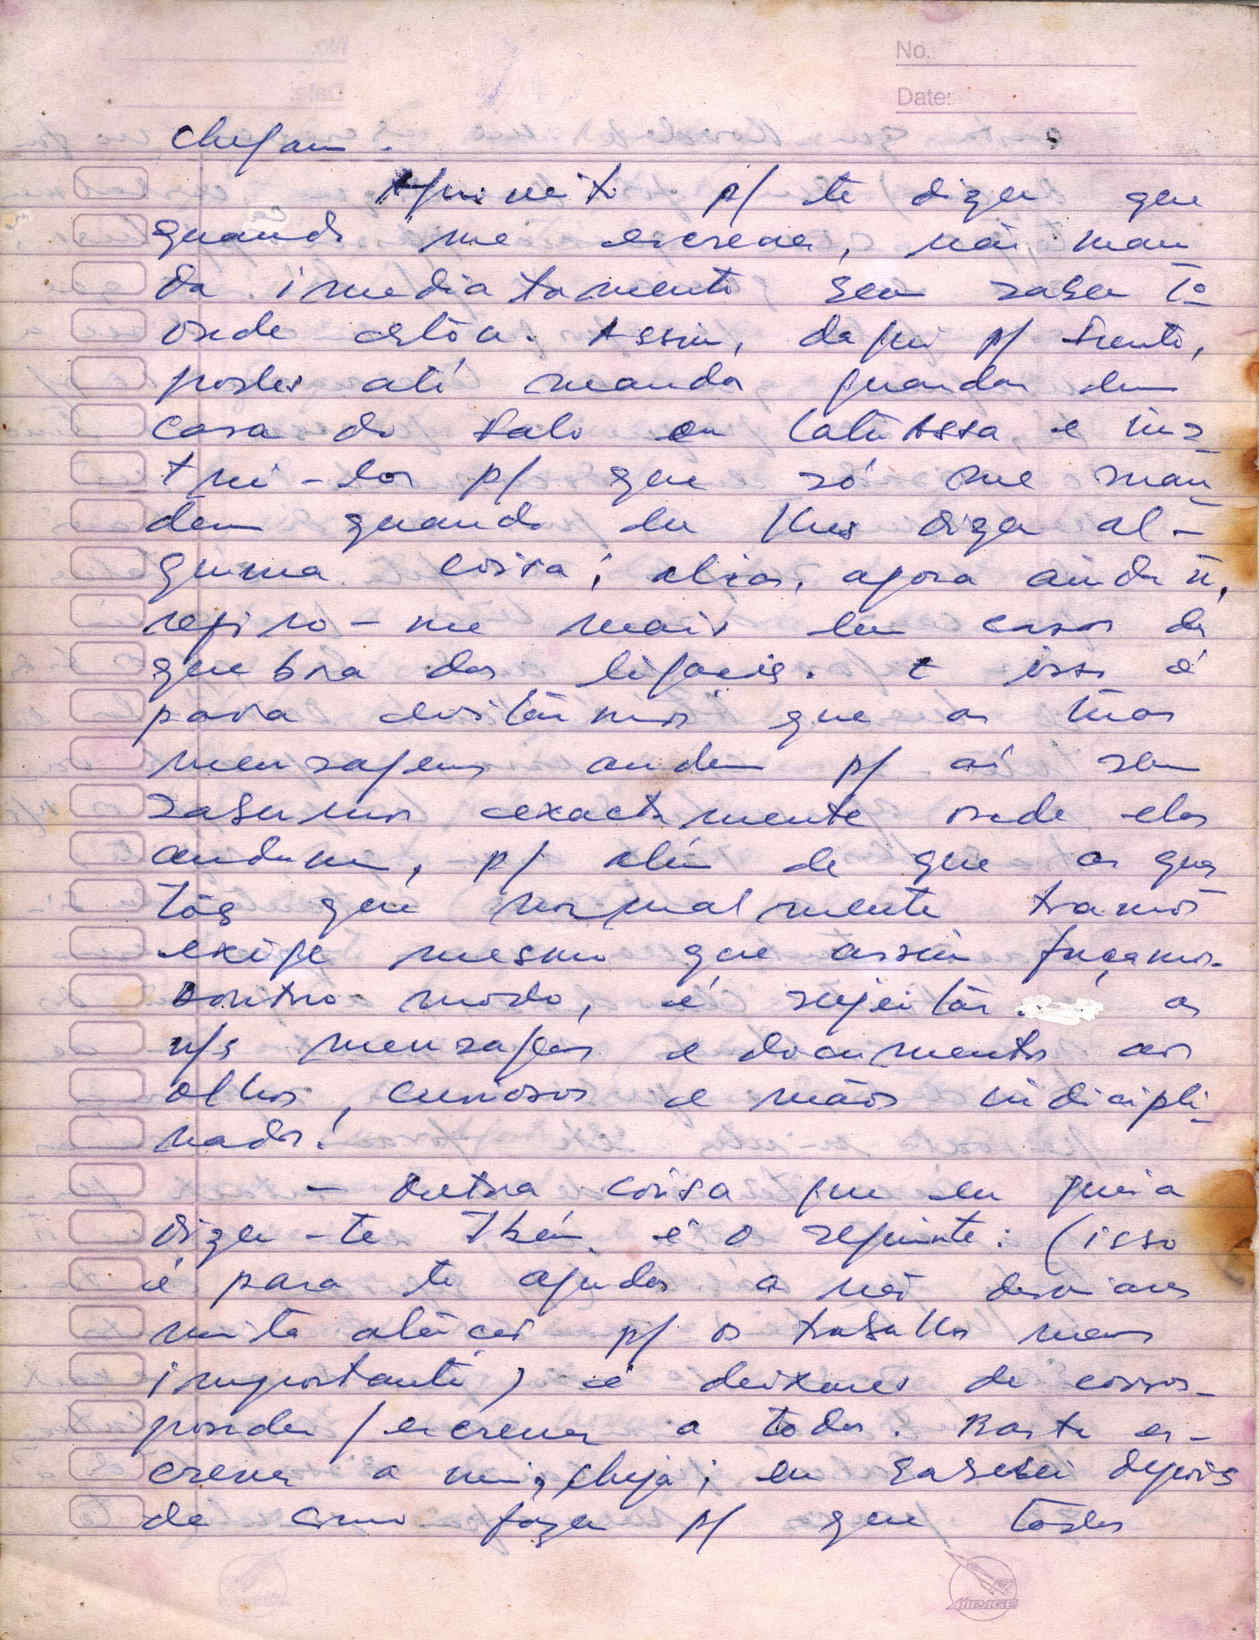 No.
Date:
chegam.
Aproveito p/ te dizer que
quando me escreves, não man
da imediatamente sem saber
onde estôu. Assim, daqui p/ frente,
podes até mandar guardar em
casa do Salo ou Catussa, e ins
trui-los p/ que só me man
dem quando eu lhes diga al-
guma coisa; aliás, agora ainda ñ,
refiro-me mais em casos de
quebra das ligações. E isso é
para evitármos que as tuas
mensagens andem p/ aí sem
sabermos exactamente onde elas
andam, p/ além de que as ques
tões que normalmente tramos
exige mesmo que assim façamos.
Doutro modo, é sujeitár as
n/s mensagens e documentos aos
olhos, curiosos e mãos indicipli-
nados!
- Outra coisa que eu queria
dizer-te tbém, é o seguinte: (isso
é para te ajudar a não desviares
muita atênção p/ os trabalhos menos
importante) é deixares de corres-
ponder/escrever a todos. Basta es-
crever a mim, chega; eu saberei depois
de como fazer p/ que todos